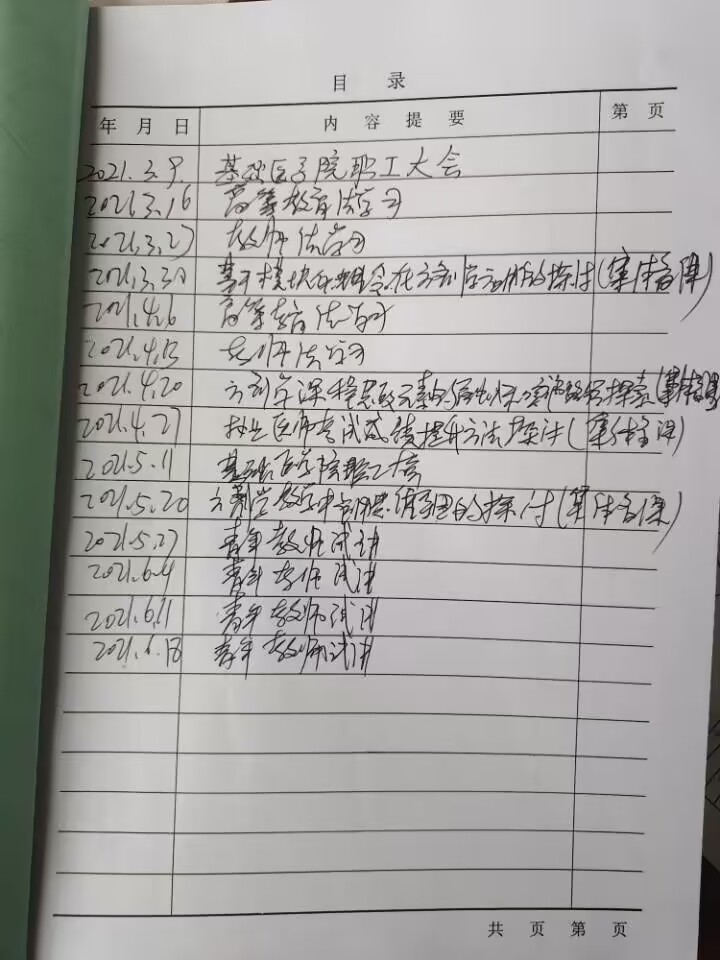 目 录
年 月 日 内 容 提 要 第 页
2021.3.9. 基础医学院职工大会
2021.3.16 高等教育法学习
2021.3.23 教师法学习
2021.3.30 基于模块 在方剂学 的探讨(集体备课)
2021.4.6 高等教育法学习
2021.4.13 教师法学习
2021.4.20 方剂学课程思政元素 探索(集体备课)
2021.4.27 执业医师考试成绩提升方法探讨(集体备课)
2021.5.11 基础医学院职工大会
2021.5.20 方剂学教学中 的探讨(集体备课)
2021.5.27 青年教师试讲
2021.6.4 青年教师试讲
2021.6.11 青年教师试讲
2021.6.18 青年教师试讲
共 页 第 页